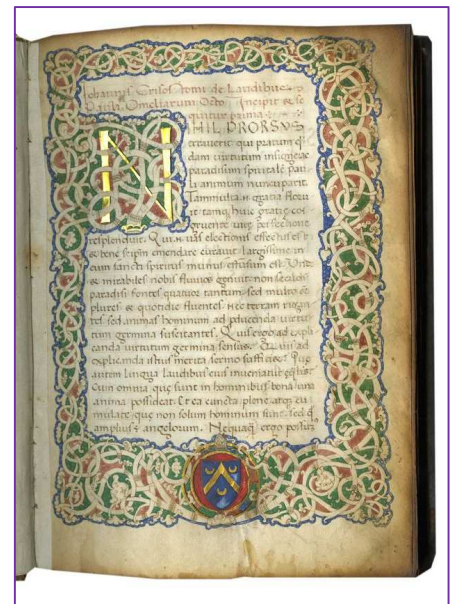 Iohannis Crisostomi de Laudibus
Pauli Omeliarum Octo Incipit & se
quitur prima
NIHIL PRORSVS
erraverit qui pratum q
dam virtutum insigne ac
paradisum spiritale pau
li animum nuncuparit
Tam multa .n. gratia floru
it tamq huic gratie con
gruente vite perfectione
resplenduit. Qui .n. vas electionis effectus
& bene seipm emendare curavit largissime in
eum sancti spiritus munus effusum est. Unde
& mirabiles nobis fluvios genuit non
paradisi fontes quatuor tantum sed multo
plures & quotidie fluentes nec terram rigan
tes sed animas hominum ad pducenda virtu
tum germina suscitantes. Quis ergo ad expli
canda virtutum germina sensus ad
explicanda istius merita sermo sufficiet. Que
autem lingua laudibus eius inveniatur
Cum omnia que sunt in hominibus bona una
anima possideat. Et ea cuncta plene atq; cu
mulate que non solum hominum sunt sed &
amplius & angelorum. Nequaq ergo